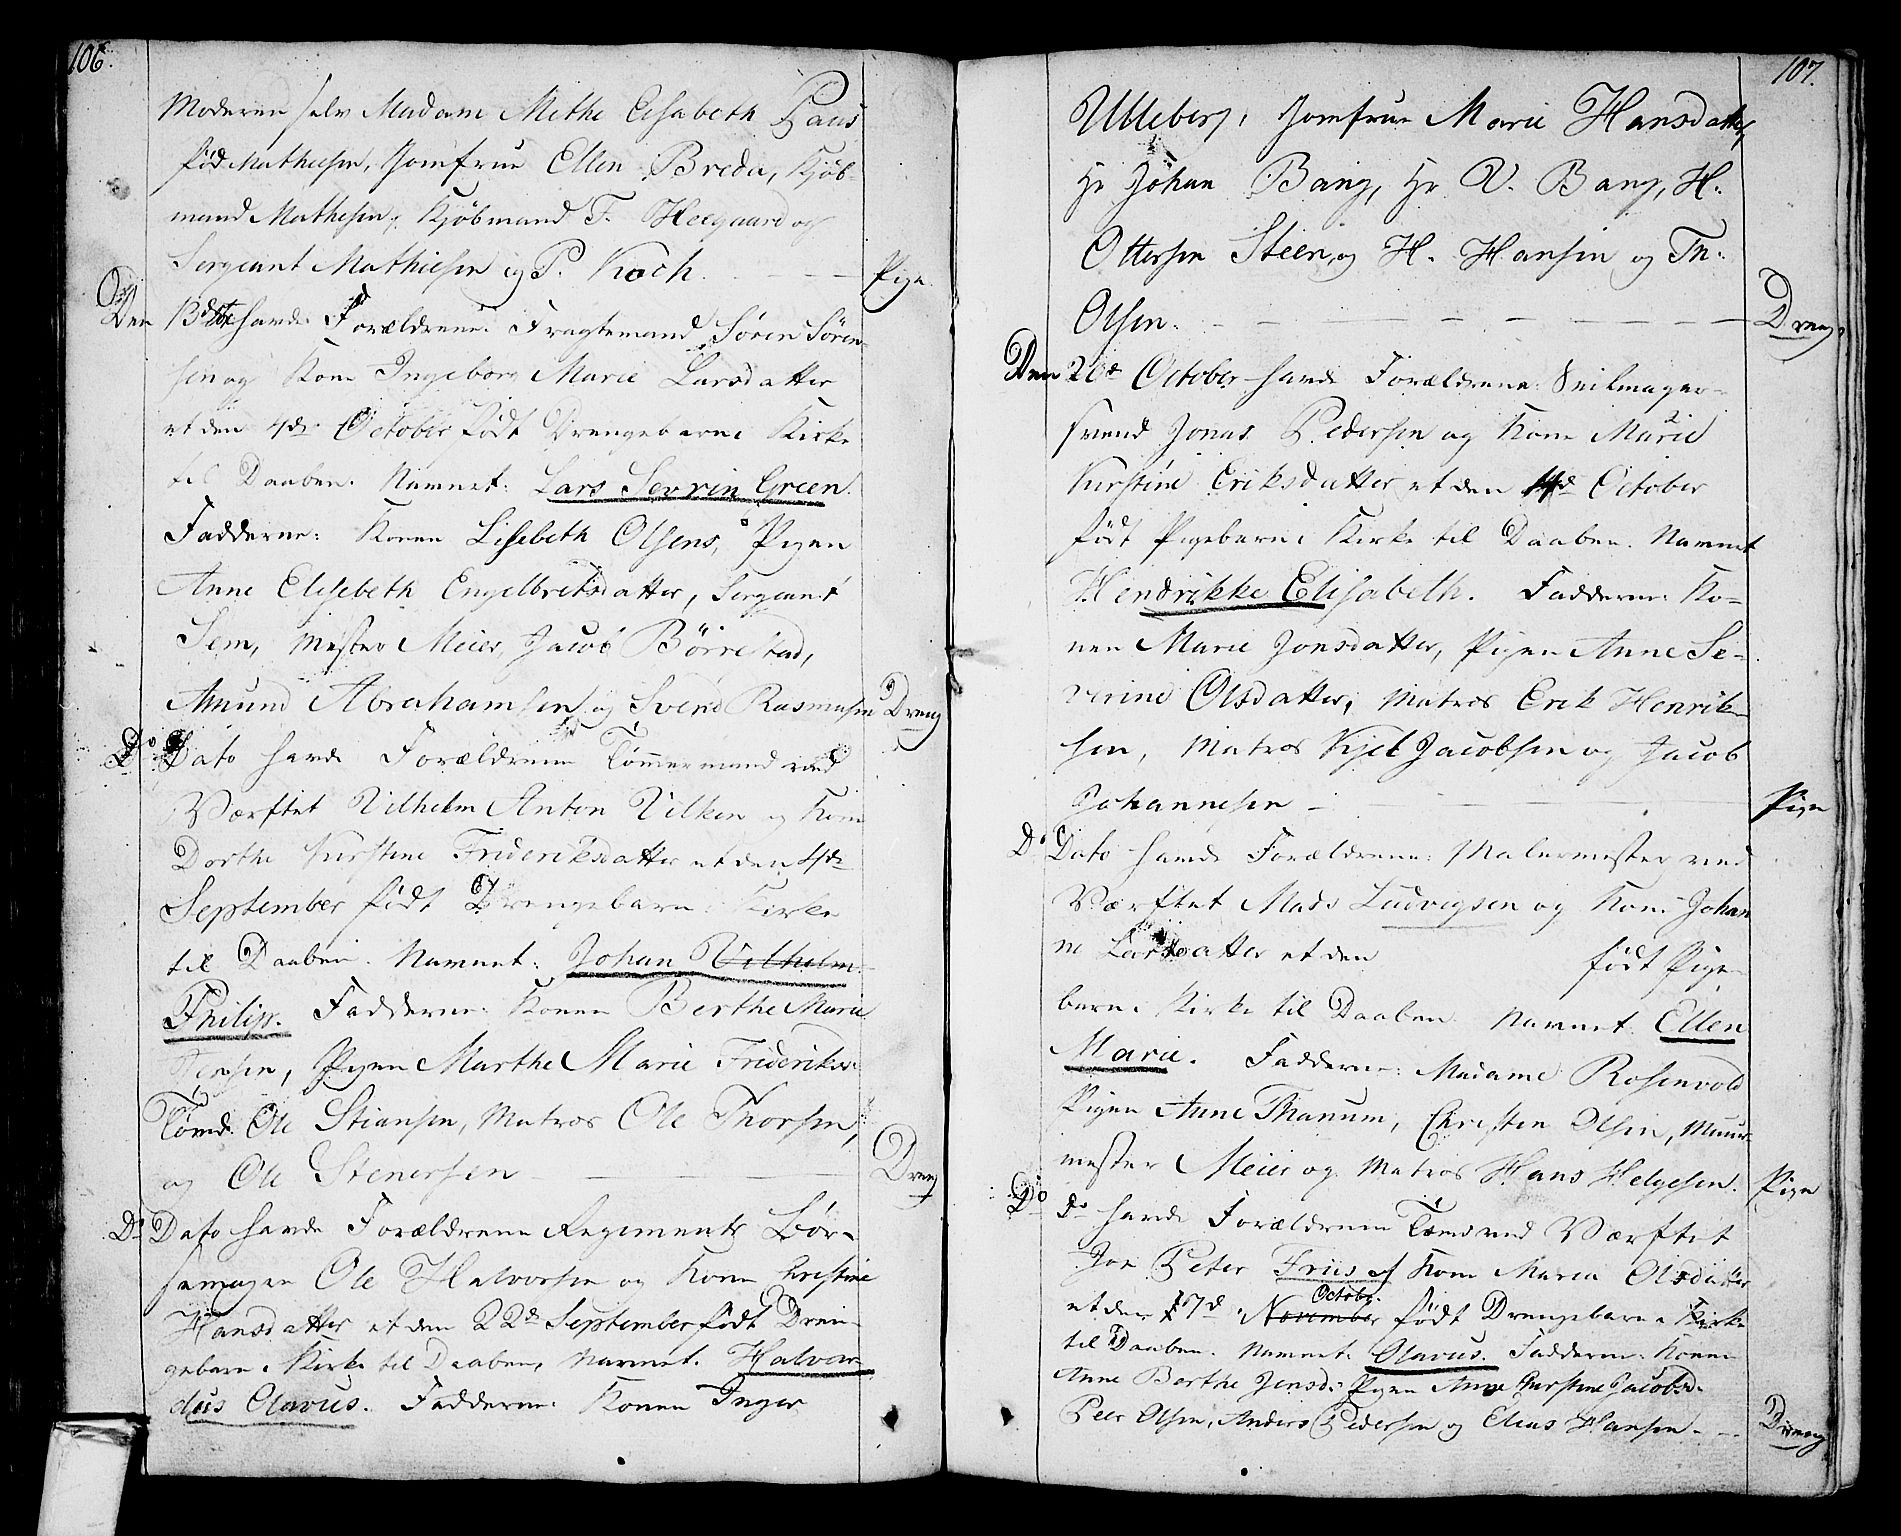 106.
Moderen selv Madam Methe Elisabeth Paus
fød Mathesen, Jomfrue Ellen Breda, Kjøb-
mand Mathesen, Kjøbmand T. Heegaard og
Sergeant Mathiesen og P. Koch. Pige
Den 13de havde Forældrene Fragtemand Søren Søren-
sen og Kone Ingeborg Marie Larsdatter
et den 4de October født Drengebarn i Kirke
til Daaben. Navnet: Lars Sevrin Green.
Fadderne: Konen Lisebeth Olsens, Pigen
Anne Elisebeth Engelbretsdatter, Sergeant
Sem, Mester Meier, Jacob Börrestad,
Amund Abrahamsen og Svend Rasmusen Dreng
Do Dato havde Forældrene Tømmermand ved
Værftet Vilhelm Anton Vilken og Kone
Dorthe Kirstine Frideriksdatter et den 4de
September født Drengebarn i Kirke
til Daaben. Navnet: Johan Vilhelm
Philip. Fadderne: Konen Berthe Marie
Jensen, Pigen Marthe Marie Frideriks:
Tömd. Ole Stiansen, Matros Ole Thorsen,
og Ole Stenersen Dreng
Do Dato havde Forældrene Regiments Bös-
semager Ole Halvorsen og Kone Christine
Hansdatter et den 22de September født Dren-
gebarn i Kirke til Daaben, Navnet. Halvar-
dus Olavus. Fadderne: Konen Inger
107.
Ulleberg, Jomfrue Marie Hansdatter,
Hr Johan Bang, Hr V. Bang, H.
Ottersen Steen, og H. Hansen og Th.
Olsen. Dreng
Den 20de October havde Forældrene Seilmager-
svend Jonas Pedersen og Kone Marie
Kirstine Eriksdatter et den 4de October
født Pigebarn i Kirke til Daaben. Navnet
Hendrikke Elisabeth. Fadderne: Ko-
nen Marie Jonsdatter, Pigen Anne Se-
verine Olsdatter, Matros Erik Henrik-
sen, Matros Kjel Jacobsen og Jacob
Johannesen Pige
Do Dato havde Forældrene: Malermester ved
Værftet Mads Ludvigsen og Kone Johan
ne Larsdatter et den født Pige-
barn i Kirke til Daaben. Navnet. Ellen
Marie. Fadderne: Madame Rosenvold
Pigen Anne Thanum, Christen Olsen, Muur-
mester Meier og Matros Hans Helgesen. Pige
Do do havde Forældrene Tømd ved Værftet
Jon Peter Friis og Kone Maren Olsdatter
et den 17de November Octobr. født Drengebarn i Kirke
til Daaben. Navnet. Olavus. Fadderne: Konen
Anne Berthe Jensd: Pigen Anne Kirstine Jacobsd.
Peer Olsen, Anders Pedersen og Elias Hansen. Dreng